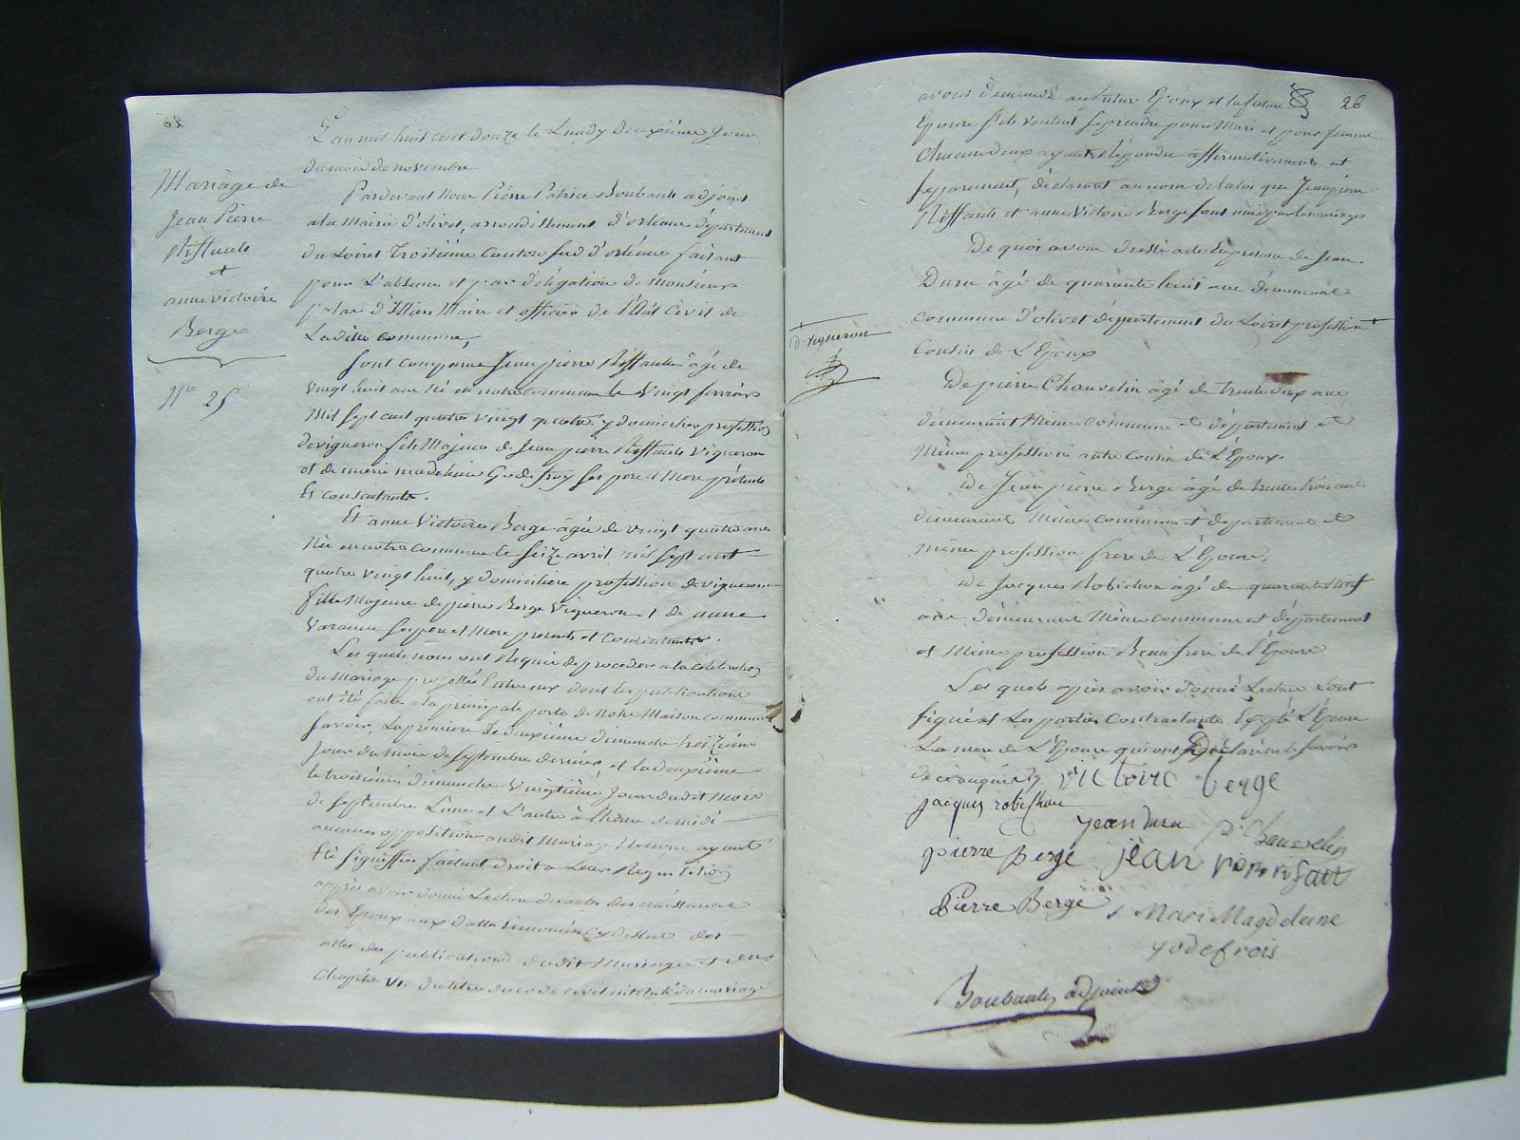 Mariage de
Jean Pierre
Riffault
et
anne victoire
Berge
Nº 25
L'an mil huit cent douze le Lundy deuxième Jour
du mois de novembre
Pardevant Nous Pierre Patrice Boubault adjoint
a la Mairie d'olivet, arrondissement d'orléans département
du Loiret Troisième Canton sud d'orléans faisant
pour L'absence et par délégation de Monsieur
Maire et officier de l'Etat Civil de
Ladite commune,
Sont comparus Jean pierre Riffault âgé de
vingt huit ans né en notre commune le Vingt fevrier
Mil sept cent quatre vingt quatre y domicilié profession
de vigneron fils Majeur de Jean pierre Riffault Vigneron
et de marie madelaine Godefroy ses pere et Mere présents
Et consentants.
Et anne Victoire Berge âgée de vingt quatre ans
Née en notre commune le seize avril mil sept cent
quatre vingt huit, y domiciliée profession de vigneronne
fille Majeure de pierre Berge Vigneron et de anne
Varanne ses pere et Mere presents et consentants.
Les quels nous ont Requis de proceder a la célébration
du Mariage projetté Entre eux dont les publications
ont été faites a la principale porte de Notre Maison commune
Savoir, La première le deuxième dimanche treizième
Jour du mois de septembre dernier, et la deuxième
le troisième dimanche Vingtième Jour du dit Mois
de septembre L'une et L'autre à l'heure de midi
aucune opposition audit Mariage Nous ayant
Eté Signiffiée faisant droit a Leur Requisition
après avoir donné Lecture des actes des naissances
des Epoux aux dattes dessus des
actes des publications dudit Mariage et du
Chapitre VI du titre du code civil intitulé du mariage
26
avons demandé au futur Epoux et la future
Epouse s'ils veulent se prendre pour Mari et pour femme
Chacun deux ayant Répondu affirmativement et
Separement, déclarons au nom de la loi que Jean pierre
Riffault et anne Victoire Berge sont unis par le mariage
De quoi avons dressé acte En présence de Jean
Dura âgé de quarante huit ans demeurant
commune d'olivet département du Loiret profession +
Cousin de L'Epoux
+ de vigneron
De pierre Chauvelin âgé de trente deux ans
demeurant Même commune et département et
Même profession autre Cousin de L'Epoux.
De Jean pierre Berge âgé de trente trois ans
demeurant Même commune et département et
même profession frere de L'Epouse,
De Jacques Robichon âgé de quarante Neuf
ans demeurant Même commune et département
et Même profession Beau frere de L'Epouse
Les quels après avoir donné Lecture Sont
signés et Les parties Contractantes Excepté L'Epoux
La mere de L'Epouse qui ont déclarés ne le savoir
de ce requis victoire berge
jacques robichon
jean dura P. Chauvelin
pierre Berge jean
Pierre Berge Mari Magdeleine
godefrois
Boubault adjoint